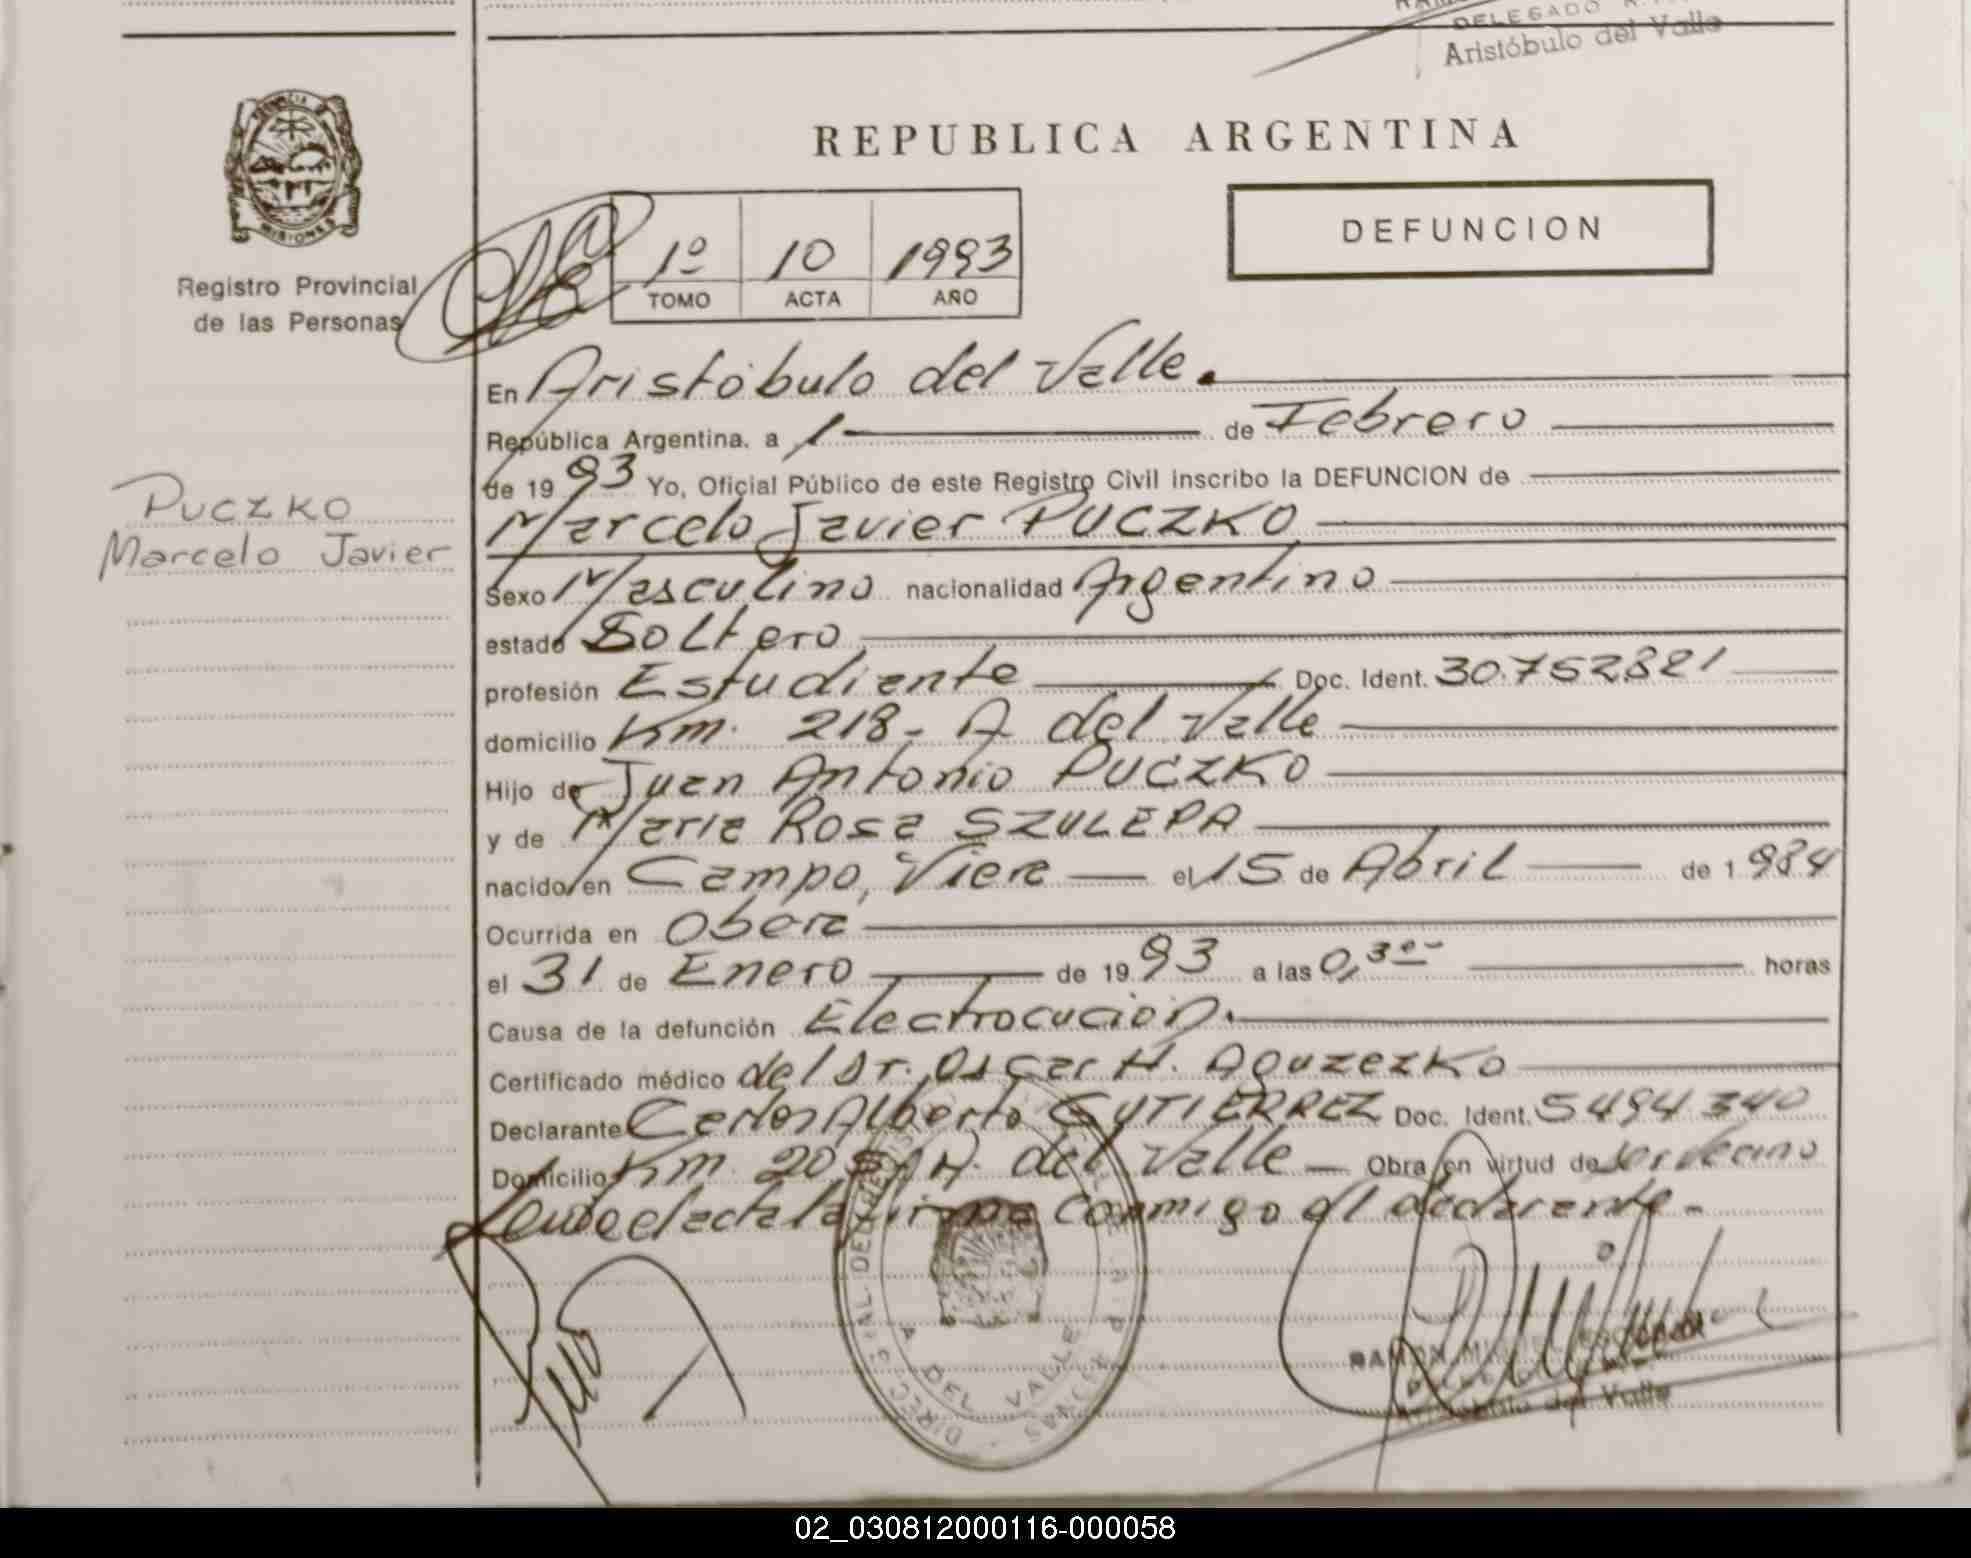 DELEGADO R.
Aristóbulo del Valle
REPUBLICA ARGENTINA
DEFUNCION
MISIONES
Registro Provincial
de las Personas
1º 10 1993
TOMO ACTA AÑO
En Aristóbulo del Valle.
República Argentina, a 1 de Febrero
de 1993 Yo, Oficial Público de este Registro Civil inscribo la DEFUNCION de
Puczko
Marcelo Javier
Marcelo Javier PUCZKO
Sexo Masculino nacionalidad Argentino
estado Soltero
profesión Estudiante Doc. Ident. 30.752.821
domicilio Km. 218 - A del Valle
Hijo de Juan Antonio PUCZKO
y de Maria Rosa SZULEPA
nacido en Campo Viera el 15 de Abril de 1984
Ocurrida en Obera
el 31 de Enero de 1993 a las 0,30 horas
Causa de la defunción Electrocución.
Certificado médico del Dr. Oscar H. Aguzezko
Declarante Carlos Alberto GUTIERREZ Doc. Ident. 5494340
Domicilio Km. 205 A. del Valle Obra en virtud de ser vecino
Leida el acta la firma conmigo el declarante.-
A DEL VALLE
MISIONES
RAMON
Aristóbulo del Valle
02_030812000116-000058